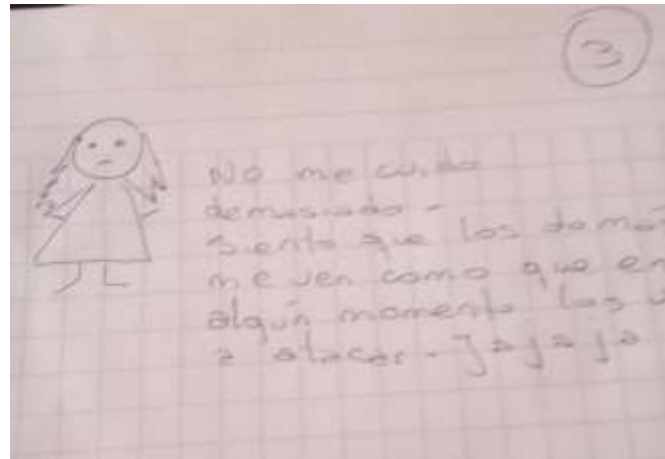 3
No me cuido
demasiado -
Siento que los demá
me ven como que en
algún momento los v
a atacar - Jajaja